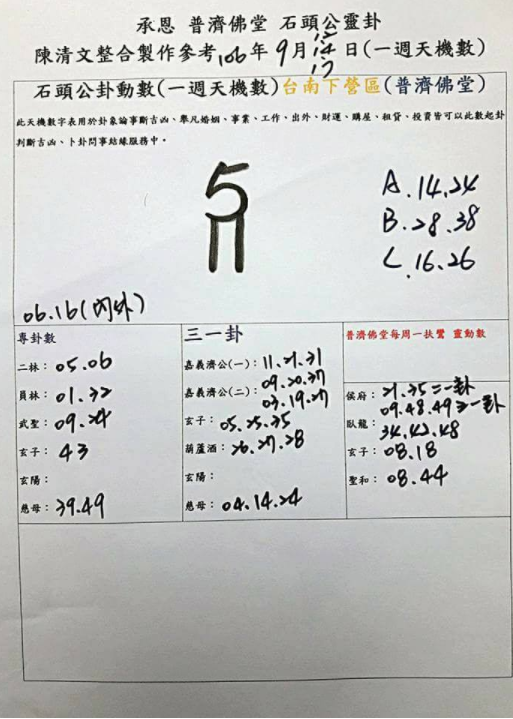 承恩 普濟佛堂 石頭公靈卦
陳清文整合製作參考106年9月12.14.17日(一週天機數)
石頭公卦動數(一週天機數)台南下營區(普濟佛堂)
此天機數字表用於卦象論事斷吉凶、舉凡婚姻、事業、工作、出外、財運、購屋、租賃、投資皆可以此數起卦
判斷吉凶、卜卦問事結緣服務中。
5
A.14.24
B.28.38
C.16.26
06.16(內外)
專卦數
二林：05.06
員林：01.32
武聖：09.24
玄子：43
玄陽：
慈母：39.49
三一卦
嘉義濟公(一)：11.21.31
嘉義濟公(二)：09.20.37
03.19.27
玄子：05.25.35
葫蘆酒：26.27.28
玄陽：
慈母：04.14.24
普濟佛堂每周一扶鸞 靈動數
侯府：21.35二一卦
09.48.49三一卦
臥龍：34.42.48
玄子：08.18
聖和：08.44